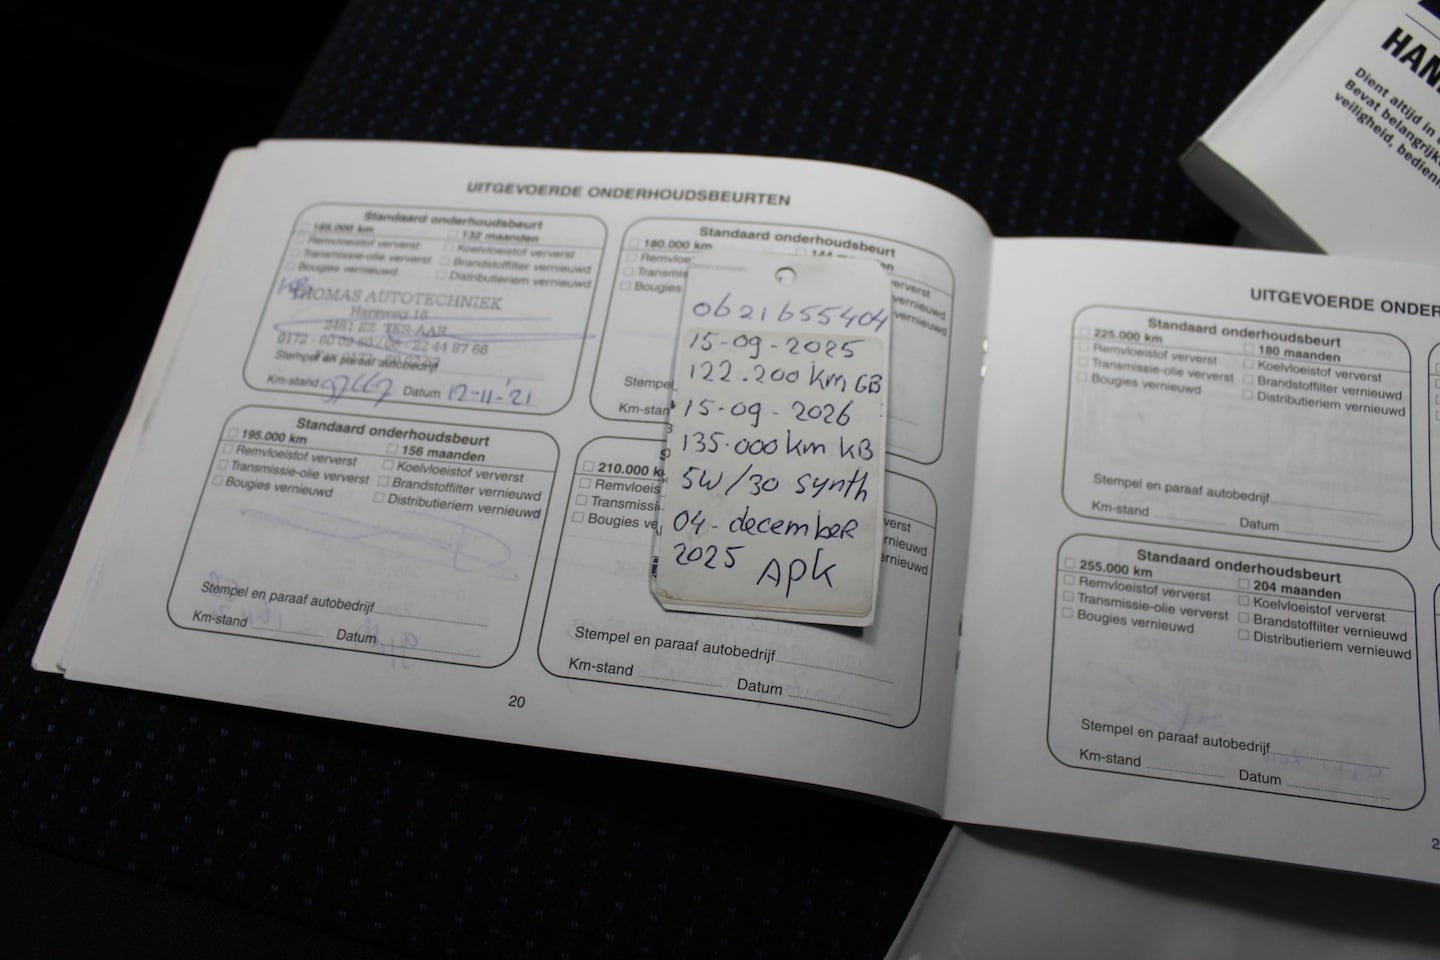 UITGEVOERDE ONDERHOUDSBEURTEN
Standaard onderhoudsbeurt
165.000 km
132 maanden
Remvloeistof ververst
Koelvloeistof ververst
Transmissie-olie ververst
Brandstoffilter vernieuwd
Bougies vernieuwd
Distributieriem vernieuwd
THOMAS AUTOTECHNIEK
Hertsweg 16
2461 EZ TER-AAR
0172 - 60 02 50 / 06 - 22 44 87 66
Fax 0172 - 60 02 52
Stempel en paraaf autobedrijf
Km-stand
Datum 12-11-'21
Standaard onderhoudsbeurt
180.000 km
144
Remvloe
ververst
Transmis
vernieuwd
Bougies
vernieuwd
Stempel
Km-stan
0621655404
15-09-2025
122.200 km GB
15-09-2026
135.000 km KB
5W/30 synth
04-december
2025 APK
Standaard onderhoudsbeurt
195.000 km
156 maanden
Remvloeistof ververst
Koelvloeistof ververst
Transmissie-olie ververst
Brandstoffilter vernieuwd
Bougies vernieuwd
Distributieriem vernieuwd
Stempel en paraaf autobedrijf
Km-stand
Datum
210.000 k
Remvloeis
verst
Transmissi
rnieuwd
Bougies ve
ernieuwd
Stempel en paraaf autobedrijf
Km-stand
Datum
20
UITGEVOERDE ONDER
Standaard onderhoudsbeurt
225.000 km
180 maanden
Remvloeistof ververst
Koelvloeistof ververst
Transmissie-olie ververst
Brandstoffilter vernieuwd
Bougies vernieuwd
Distributieriem vernieuwd
Stempel en paraaf autobedrijf
Km-stand
Datum
Standaard onderhoudsbeurt
255.000 km
204 maanden
Remvloeistof ververst
Koelvloeistof ververst
Transmissie-olie ververst
Brandstoffilter vernieuwd
Bougies vernieuwd
Distributieriem vernieuwd
Stempel en paraaf autobedrijf
Km-stand
Datum
2
HAN
Dient altijd in
Bevat belangrijk
veiligheid, bedieni